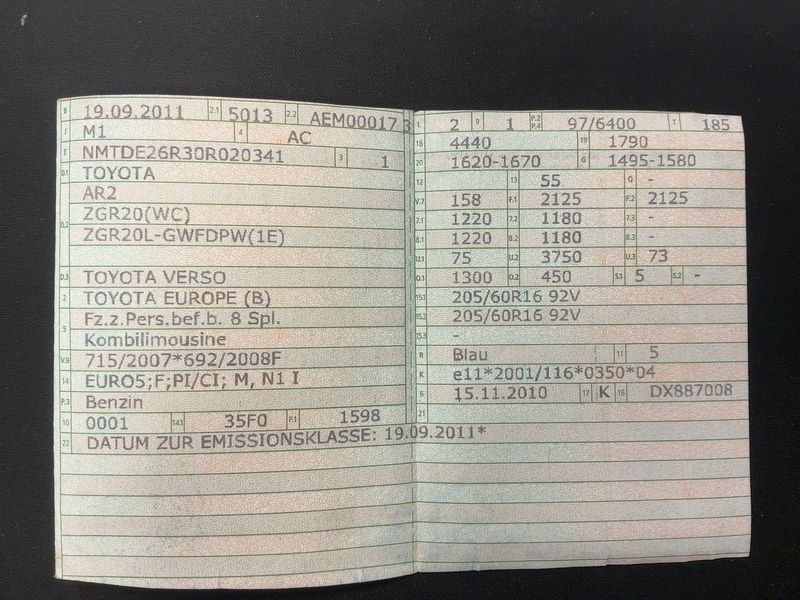 B 19.09.2011 2.1 5013 2.2 AEM00017 3
J M1 4 AC
E NMTDE26R30R020341 3 1
D.1 TOYOTA
AR2
D.2 ZGR20(WC)
ZGR20L-GWFDPW(1E)
D.3 TOYOTA VERSO
2 TOYOTA EUROPE (B)
5 Fz.z.Pers.bef.b. 8 Spl.
Kombilimousine
V.9 715/2007*692/2008F
14 EURO5;F;PI/CI; M, N1 I
P.3 Benzin
10 0001 14.1 35F0 P.1 1598
22 DATUM ZUR EMISSIONSKLASSE: 19.09.2011*
L 2 9 1 P.2 P.4 97/6400 T 185
18 4440 19 1790
20 1620-1670 G 1495-1580
12 13 55 Q -
V.7 158 F.1 2125 F.2 2125
7.1 1220 7.2 1180 7.3 -
8.1 1220 8.2 1180 8.3 -
U.1 75 U.2 3750 U.3 73
O.1 1300 O.2 450 S.1 5 S.2 -
15.1 205/60R16 92V
15.2 205/60R16 92V
15.3 -
R Blau 11 5
K e11*2001/116*0350*04
6 15.11.2010 17 K 16 DX887008
21